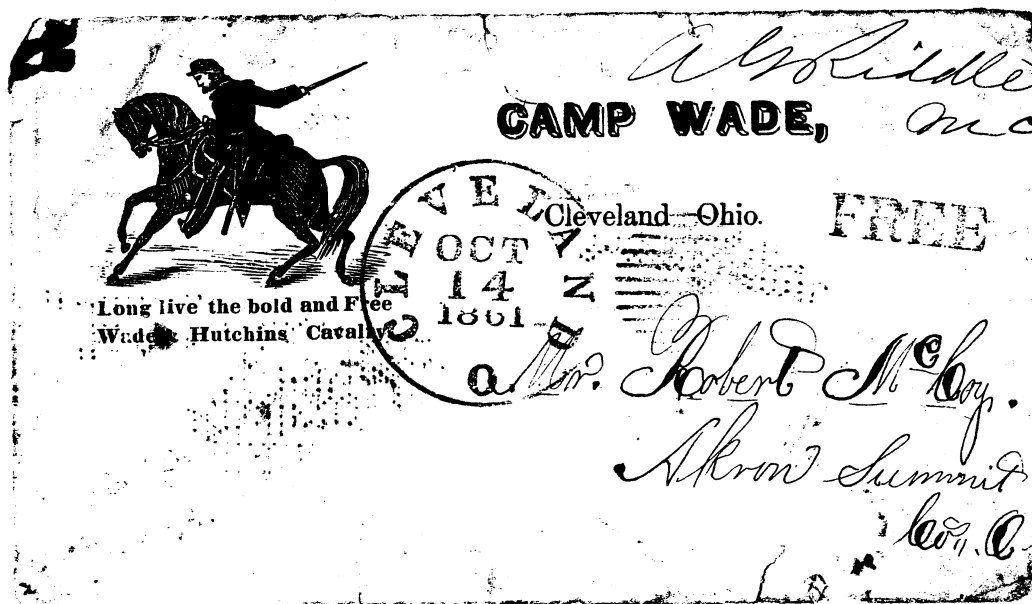 A G Riddle
M C
CAMP WADE,
Cleveland Ohio.
FREE
CLEVELAND O.
OCT
14
1861
Long live the bold and Free
Wade & Hutchins Cavalry.
Mr. Robert McCoy.
Akron Summit
Co., O.